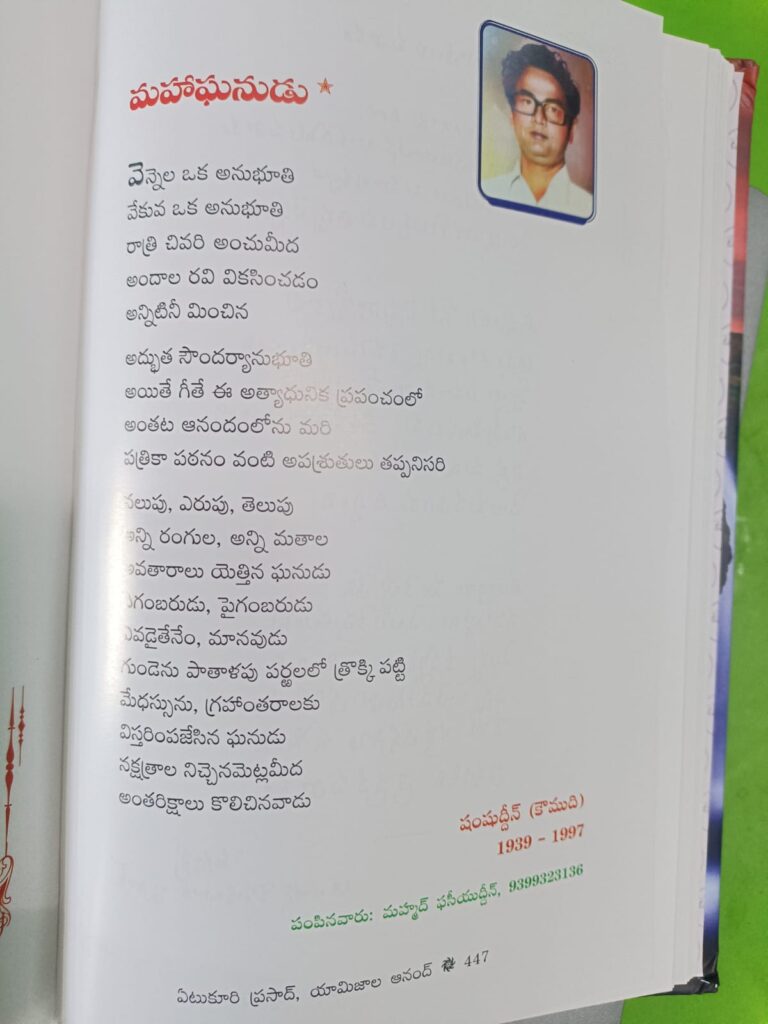 మహాఘనుడు *
వెన్నెల ఒక అనుభూతి
వేకువ ఒక అనుభూతి
రాత్రి చివరి అంచుమీద
అందాల రవి వికసించడం
అన్నిటినీ మించిన
అద్భుత సౌందర్యానుభూతి
అయితే గీతే ఈ అత్యాధునిక ప్రపంచంలో
అంతట ఆనందంలోను మరి
పత్రికా పఠనం వంటి అపశ్రుతులు తప్పనిసరి
నలుపు, ఎరుపు, తెలుపు
అన్ని రంగుల, అన్ని మతాల
అవతారాలు యెత్తిన ఘనుడు
దిగంబరుడు, పైగంబరుడు
ఎవడైతేనేం, మానవుడు
గుండెను పాతాళపు పర్ఱలలో త్రొక్కి పట్టి
మేధస్సును, గ్రహాంతరాలకు
విస్తరింపజేసిన ఘనుడు
నక్షత్రాల నిచ్చెనమెట్లమీద
అంతరిక్షాలు కొలిచినవాడు
షంషుద్దీన్ (కౌముది)
1939 - 1997
పంపినవారు: మహ్మద్ ఫసీయుద్దీన్, 9399323136
ఏటుకూరి ప్రసాద్, యామిజాల ఆనంద్ 447